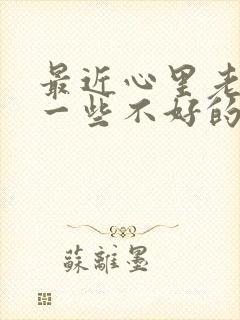 最近心里老
一些不好的
蘇離墨